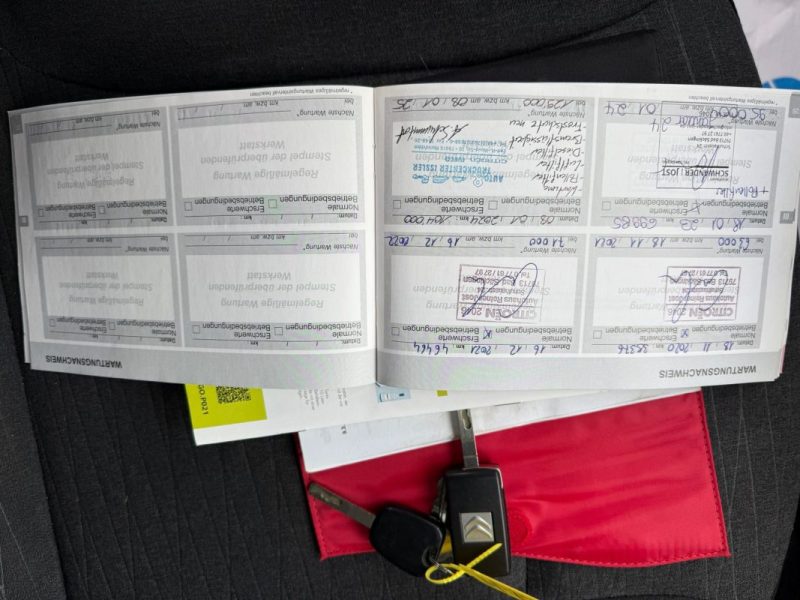 WARTUNGSNACHWEIS
Datum: 18 . 11 . 2020 km 35376
Normale
Erschwerte
Betriebsbedingungen
Betriebsbedingungen
CITROËN 2046
Autohaus Reiner Jost
79713 Bad Säckingen
Nächste Wartung*
bei: 63000 km bzw. am 18 . 11 . 2021
Datum: 16 . 12 . 2021 km 46464
Normale
Erschwerte
Betriebsbedingungen
Betriebsbedingungen
CITROËN 2046
Autohaus Reiner Jost
79713 Bad Säckingen
Nächste Wartung*
bei: 71000 km bzw. am 16 . 12 . 2022
Datum: 18 . 01 . 23 km 69985
Normale
Erschwerte
Betriebsbedingungen
Betriebsbedingungen
+ Pollenfilter
SCHWANDER | JOST
79713 Bad Säckingen
Nächste Wartung*
bei: 95000 km bzw. am 01 . 24
Datum: 08 . 01 . 2024 km 104000
Normale
Erschwerte
Betriebsbedingungen
Betriebsbedingungen
Wartung
Pollenfilter
Luftfilter
Dieselfilter
Bremsflüssigkeit
Frostschutz neu
AUTO
TRUCKCENTER ISSLER
Nächste Wartung*
bei: 129000 km bzw. am 08 . 01 . 25
*regelmäßiges Wartungsintervall beachten
WARTUNGSNACHWEIS
Datum: km
Normale
Erschwerte
Betriebsbedingungen
Betriebsbedingungen
Regelmäßige Wartung
Stempel der überprüfenden
Werkstatt
Nächste Wartung*
bei: km bzw. am
Datum: km
Normale
Erschwerte
Betriebsbedingungen
Betriebsbedingungen
Regelmäßige Wartung
Stempel der überprüfenden
Werkstatt
Nächste Wartung*
bei: km bzw. am
Datum: km
Normale
Erschwerte
Betriebsbedingungen
Betriebsbedingungen
Regelmäßige Wartung
Stempel der überprüfenden
Werkstatt
Nächste Wartung*
bei: km bzw. am
Datum: km
Normale
Erschwerte
Betriebsbedingungen
Betriebsbedingungen
Regelmäßige Wartung
Stempel der überprüfenden
Werkstatt
Nächste Wartung*
bei: km bzw. am
*regelmäßiges Wartungsintervall beachten
GO.P021